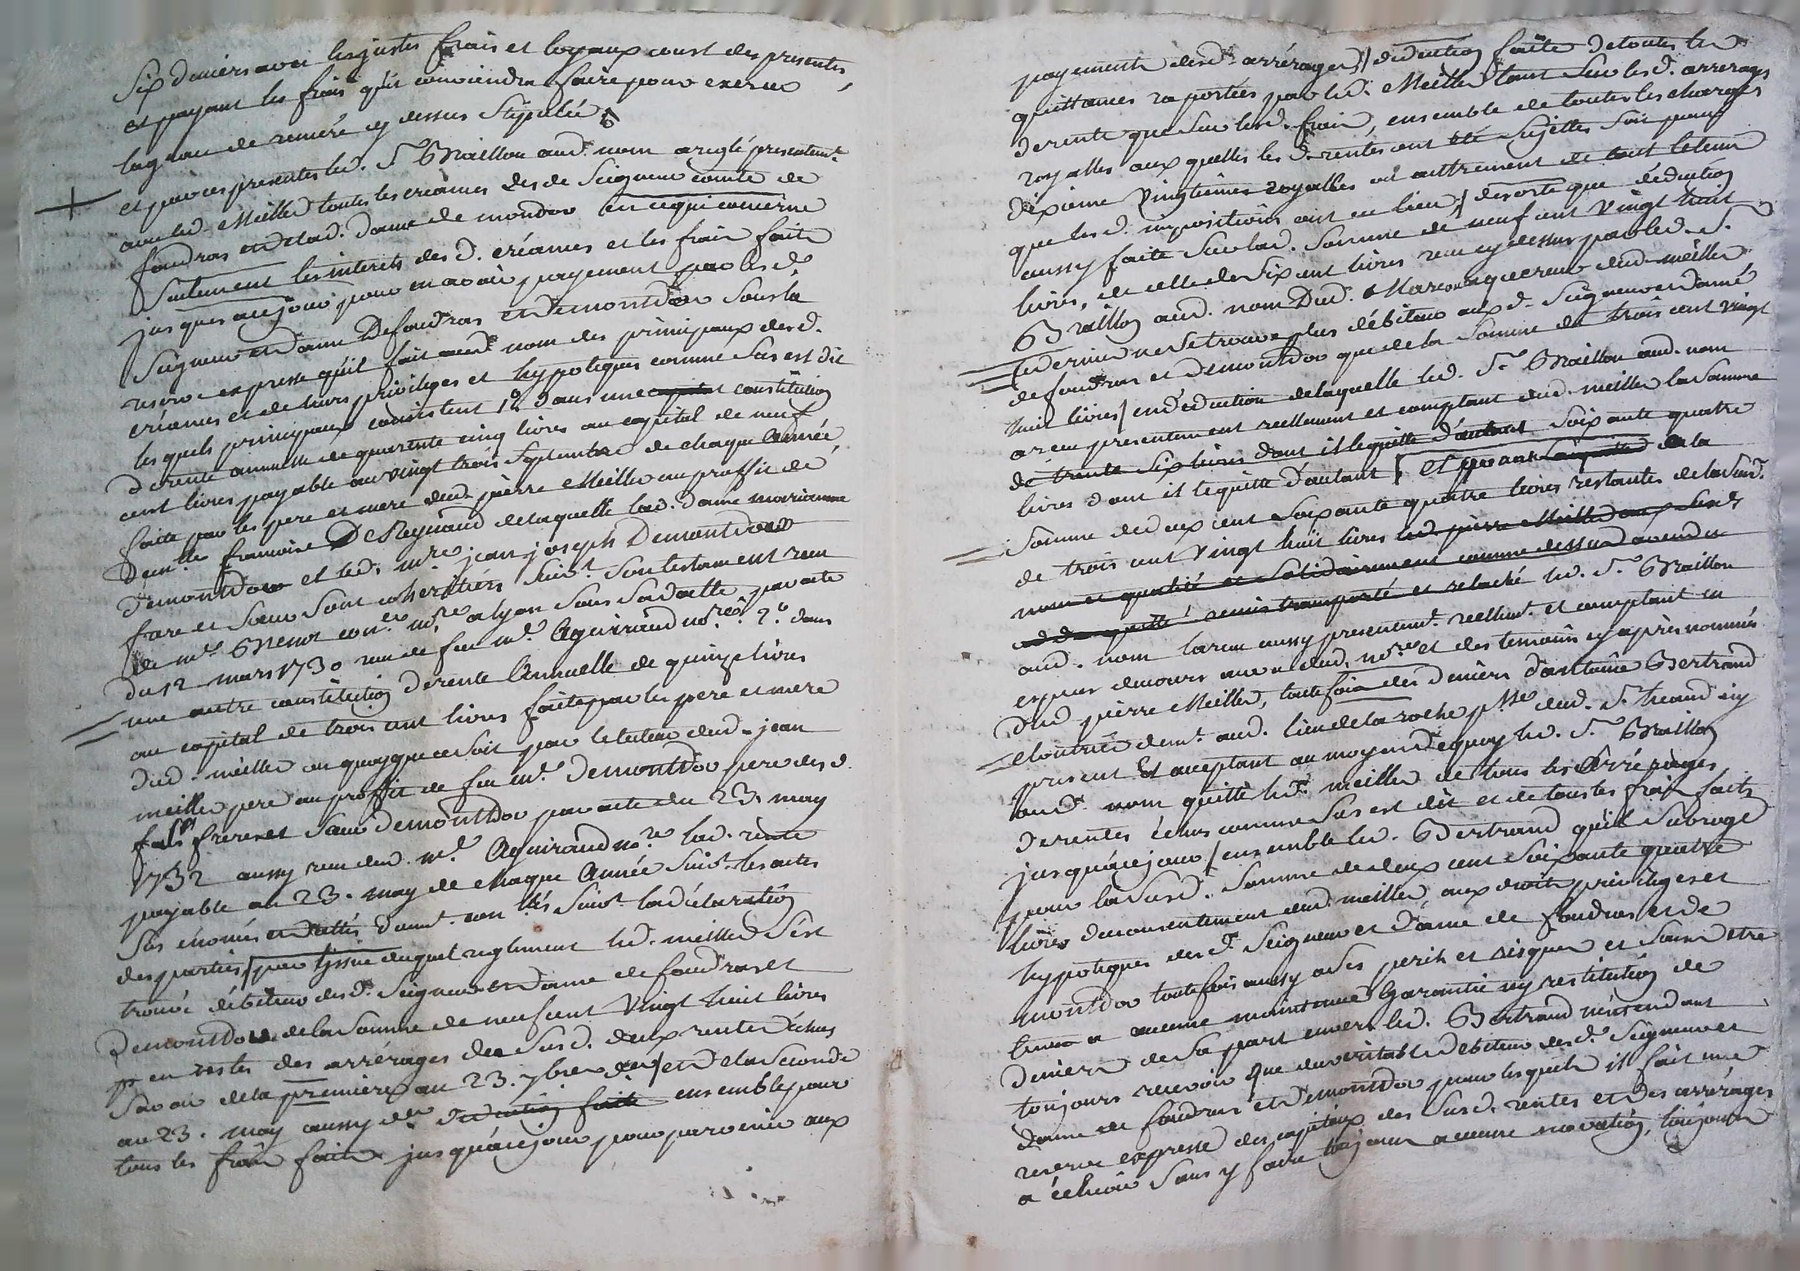 Six deniers avec les justes frais et loyaux coust des presentes,
et payant les frais qu'il conviendra faire pour exercer
la grace de reméré cy dessus stipulée
et par ces presentes led. Sr Braillon aud. nom a reglé presentemt
avec led. Meiller toutes les creances desd. Seigneur comte de
foudras et de lad. dame de mondor en ce qui concerne
Seulement les interets des d. créances et les frais faits
jusques a ce jour pour en avoir payement par les d.
Seigneur et dame Defoudras et demontdor sous la
reserve expresse qu'il fait aud. nom des principaux desd.
créances et de leurs privileges et hypoteques comme sus est dit
les quels principaux consistent 1° dans une constitution
de rente annuelle de quarente cinq livres au capital de neuf
cent livres payable au vingt trois Septembre de chaque année
faite par les pere et mere dud. pierre Meiller au proffit de
demlle francoise De Reynaud de laquelle lad. dame marianne
demontdor et led. mre jean joseph Demontdor
frere et soeur sont coheritiers suivt son testament recu
de me conr nore a lyon sous sa datte, par acte
du 12 mars 1730 recu de feu me Aguiraud nore 2° dans
une autre constitution de rente Annuelle de quinze livres
au capital de trois cent livres faite par les pere et mere
dud. meiller ou quoy que ce soit par le tuteur dud. jean
meiller pere au proffit de feu mre demontdor pere des d.
frere et soeur demontdor par acte du 23. may
1732 aussy recu dud. me Aguiraud nore lad. rente
payable au 23. may de chaque Année suivt les actes
sus énoncés suivt la déclaration
des parties par l'issue duquel reglement led. meiller s'est
trouvé débiteur desd. Seigneur et dame de foudras et
Demontdor de la somme de neuf cent vingt huit livres
en restes des arrérages des susd. deux rentes échus
savoir de la premiere au 23. 7bre der et de la seconde
au 23. may aussy der deduction faite ensemble pour
tous les frais faits jusqu'a ce jour pour parvenir aux
payements desd. arrérages deduction faite de toutes les
quittances raportées par led. Meiller tant sur les d. arrerages
de rente que sur lesd. frais, ensemble de toutes les charges
royalles aux quelles les d. rentes ont été sujettes soit pour
dixieme vingtieme royalles ou autrement de tout le temps
que les d. impositions ont eu lieu, desorte que déduction
aussy faite sur lad. somme de neuf cent vingt huit
livres, de celle de six cent livres recu cy dessus par led. S.
Braillon aud. nom Dud. acquereur dud. meiller
ce dernier ne se trouve plus débiteur aux d. Seigneur et dame
de foudras et Demontdor que de la somme de trois cent vingt
huit livres en deduction de laquelle led. Sr Braillon aud. nom
a recu presentement reellement et comptant dud. meiller la somme
de trente six livres dont il le quitte d'autant soixante quatre
livres dont il le quitte d'autant Et quant a la
somme de deux cent soixante quatre livres restantes de la susd.
de trois cent vingt huit livres led. pierre Meiller
nom et qualité et solidairement comme dessus
remis transporté et relaché led. Sr Braillon
aud. nom la recu aussy presentemt reellemt et comptant en
especes de cours aud. nore et des temoins cy après nommés
Dud. pierre Meiller, toute fois des deniers d'antoine Bertrand
demt aud. lieu de la roche psse dud. St icy
present Et acceptant au moyen de quoy led. Sr Braillon
aud. nom quitte led. meiller de tous les Arrérages
de rentes échus comme sus est dit et de tous les frais faits
jusqu'a ce jour, ensemble led. Bertrand qu'il subroge
pour la susd. somme de deux cent soixante quatre
livres du consentement dud. meiller, aux droits privileges et
hypoteques desd. Seigneur et dame de foudras et de
montdor toute fois aussy a ses perils et risques et sans etre
tenu a aucune maintenue Garantie ny restitution de
deniers de sa part envers led. Bertrand n'entendant
toujours recevoir que du veritable débiteur desd. Seigneur et
dame de foudras et demontdor pour lesquels il fait une
reserve expresse des capitaux des susd. rentes et des arrérages
a échoir sans y faire toujours aucune novation, toujours